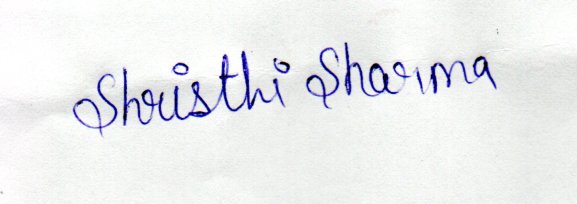 Shristhi Sharma